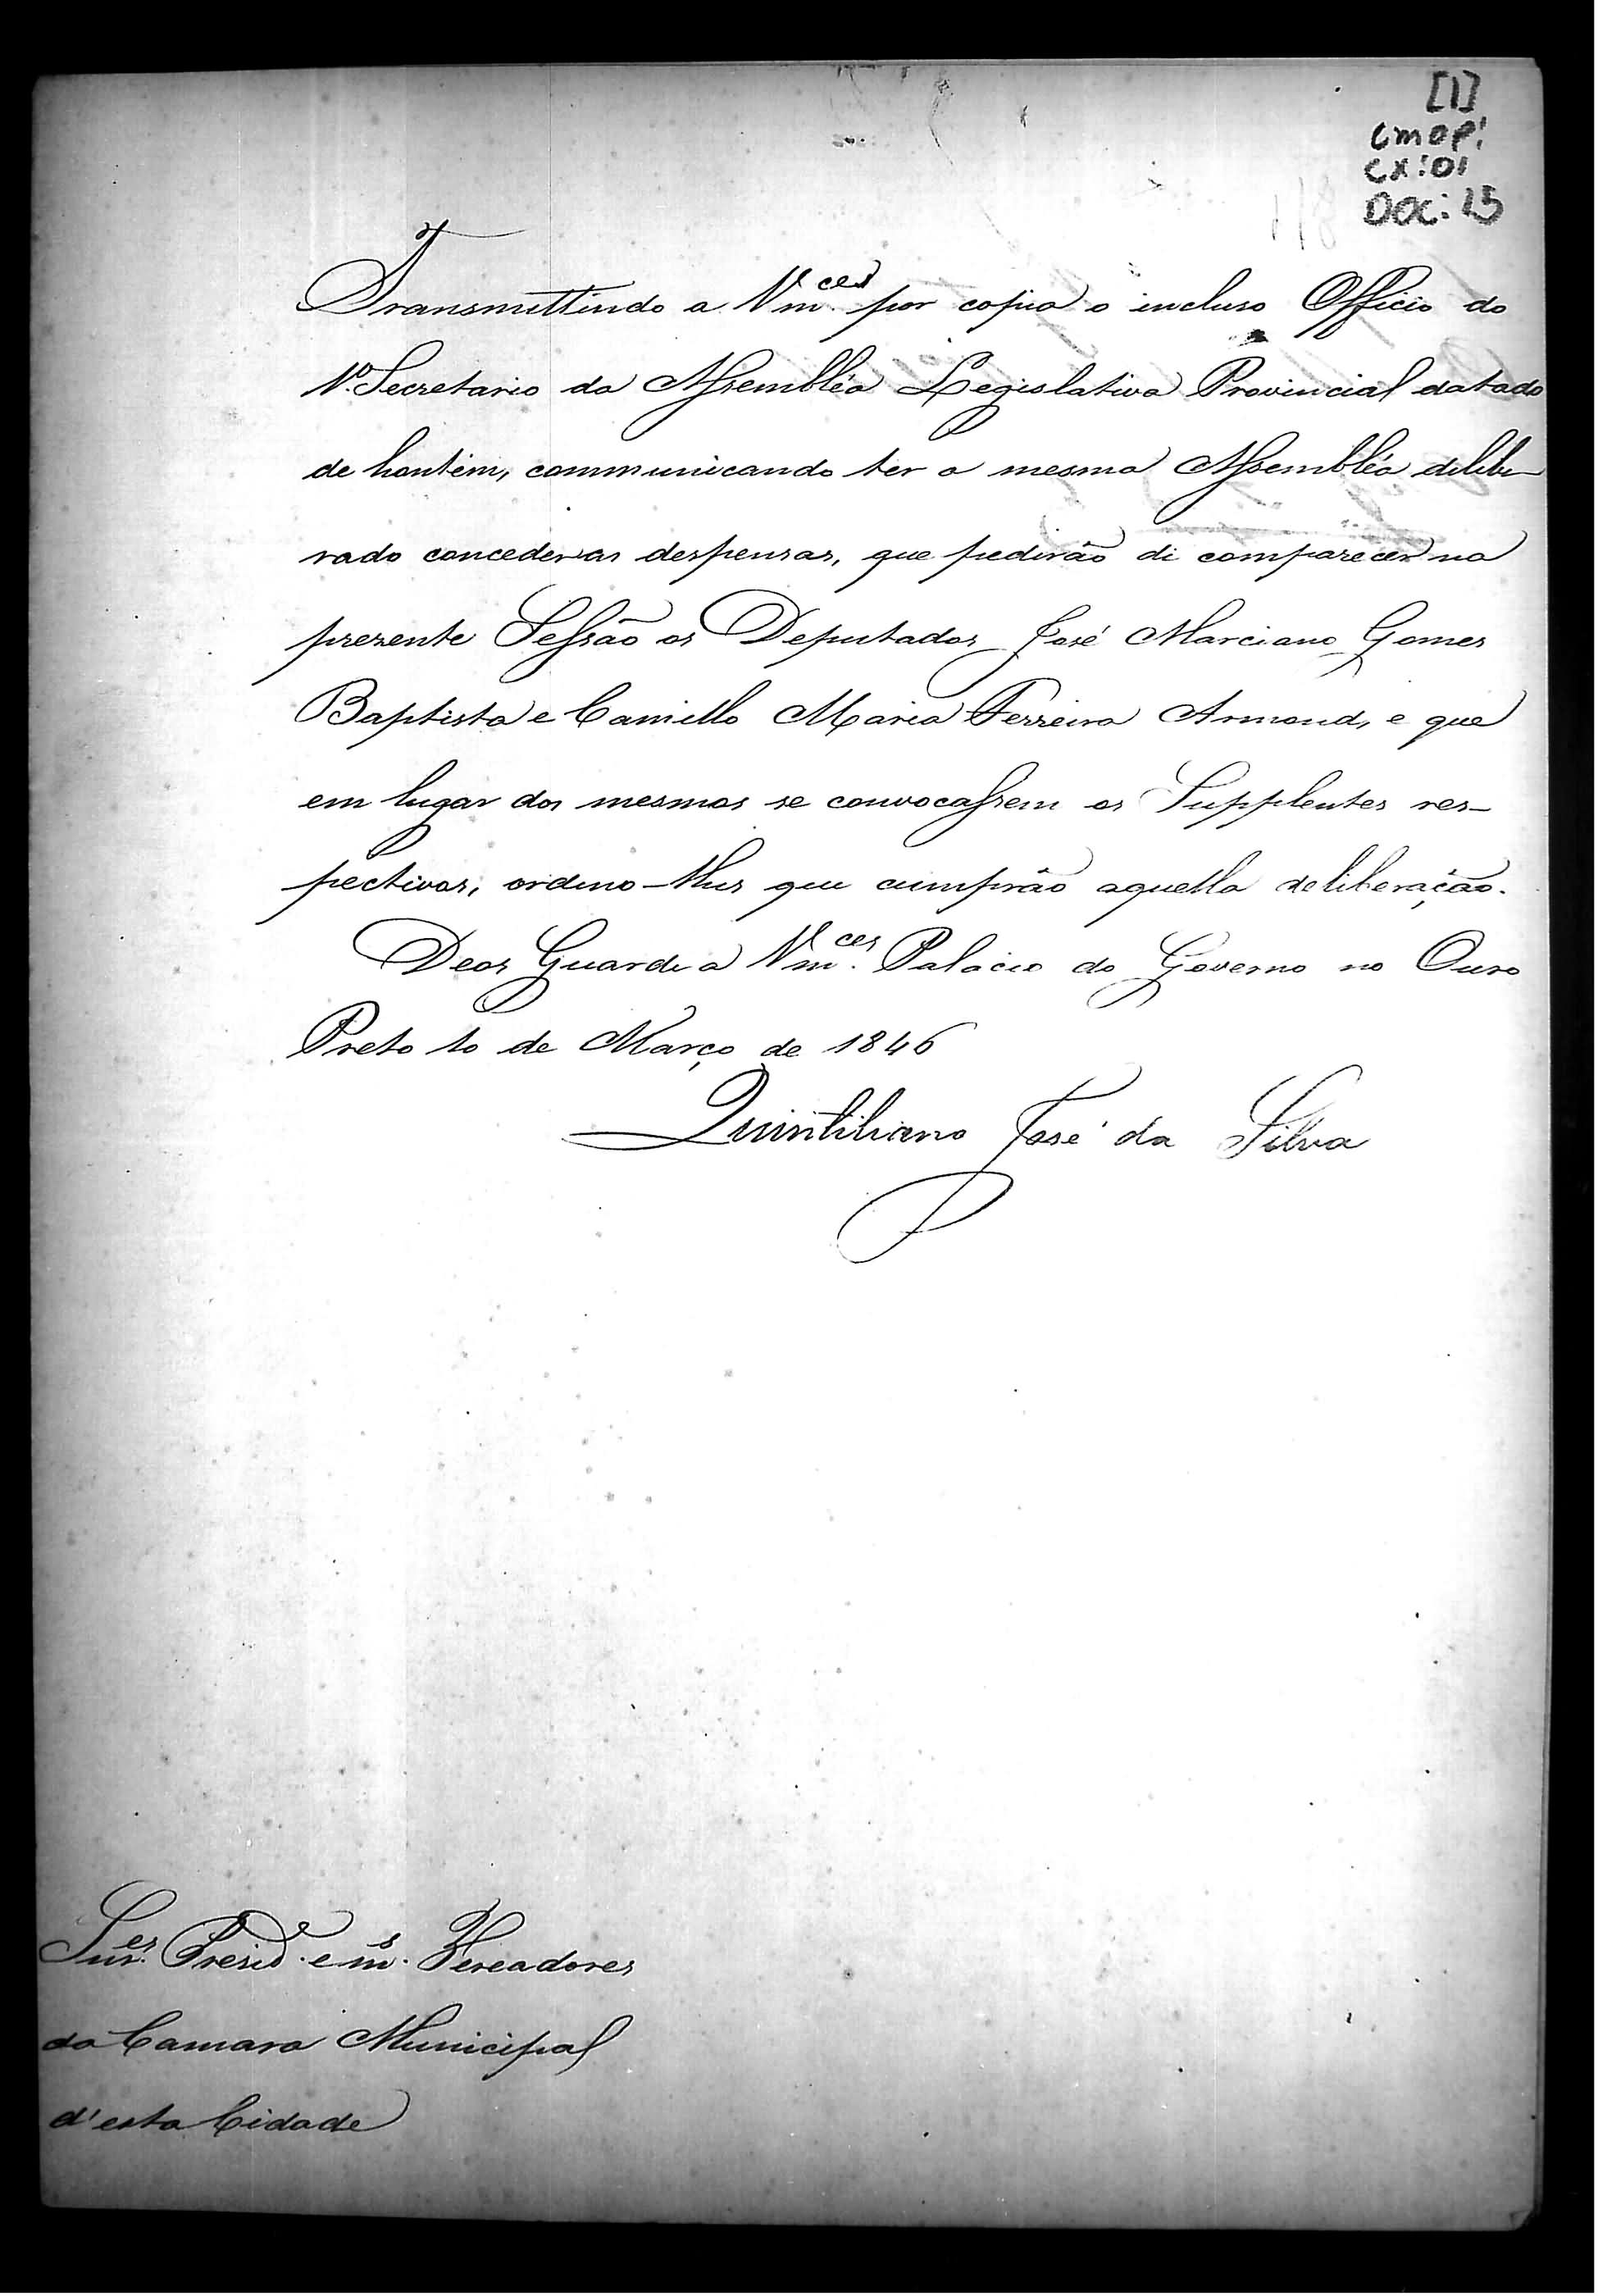 [1]
CMOP:
CX: 01
DOC: 15
Transmittindo a Vm.ces por copia o incluso Officio do
1.º Secretario da Assembléa Legislativa Provincial datado
de hontem, communicando ter a mesma Assembléa delibe-
rado conceder as despensas, que pedirão di comparecer na
prezente Sessão os Deputados José Marciano Gomes
Baptista e Camillo Maria Ferreira Armond, e que
em lugar dos mesmos se convocassem os Supplentes res-
pectivos, ordeno-lhes que cumprão aquella deliberação.
Deos Guarde a Vm.ces Palacio do Governo no Ouro
Preto 10 de Março de 1846
Quintiliano José da Silva
Snr.es Presid.e e m.s Vereadores
da Camara Municipal
d'esta Cidade